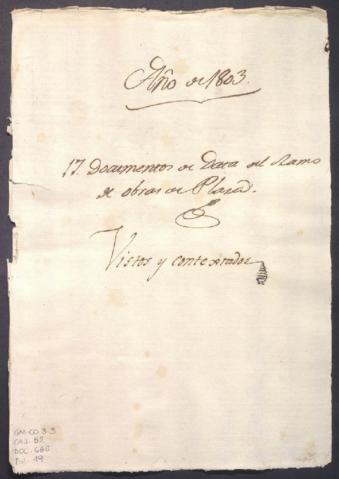 Año de 1803.
17. Documentos de Data del Ramo
de obras de Plaza.
Vistos y contextados
GM-CO 3-3
CAJ. 52
DOC. 688
Fol. 19